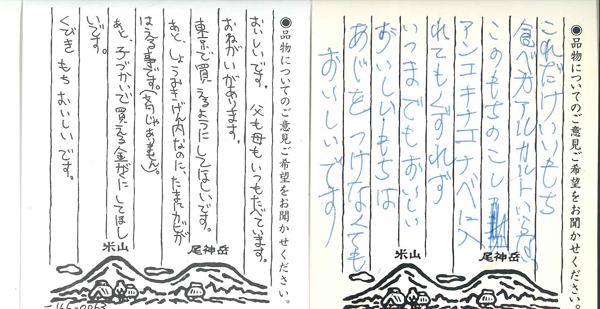 ●品物についてのご意見ご希望をお聞かせください。
これだけいいもち
食べカアルカルトいらな、
このもちのこし
アンコキナコナベに入
れてもくずれず
いつまでもおいしい
おいしいもちは
あじをつけなくても
おいしいです
尾神岳
米山
●品物についてのご意見ご希望をお聞かせください。
おいしいです。父も母もいつもたべています。
おねがいがあります。
東京で買えるようにしてほしいです。
あと、しょうみきげん内なのに、たまにカビが
はえる事です。(文句じゃありません)。
あと、子づかいで買える金がくにしてほし
いです。
くびきもちおいしいです。
尾神岳
米山